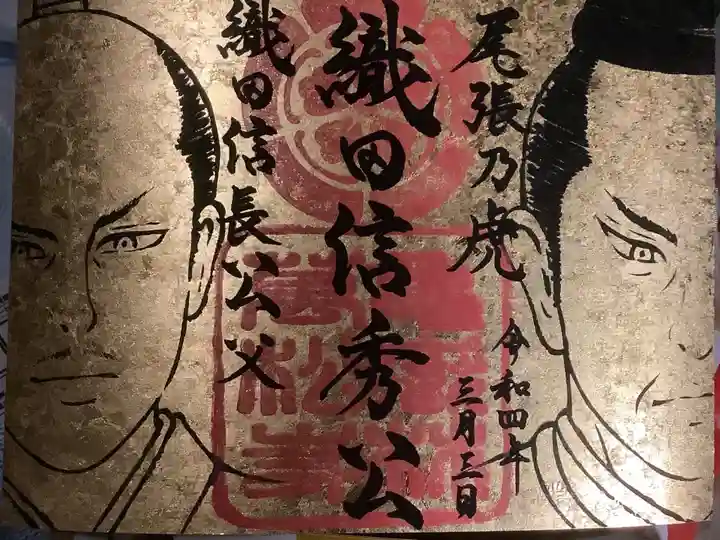 尾張乃虎
織田信秀公
織田信長公父
令和四年
三月三日